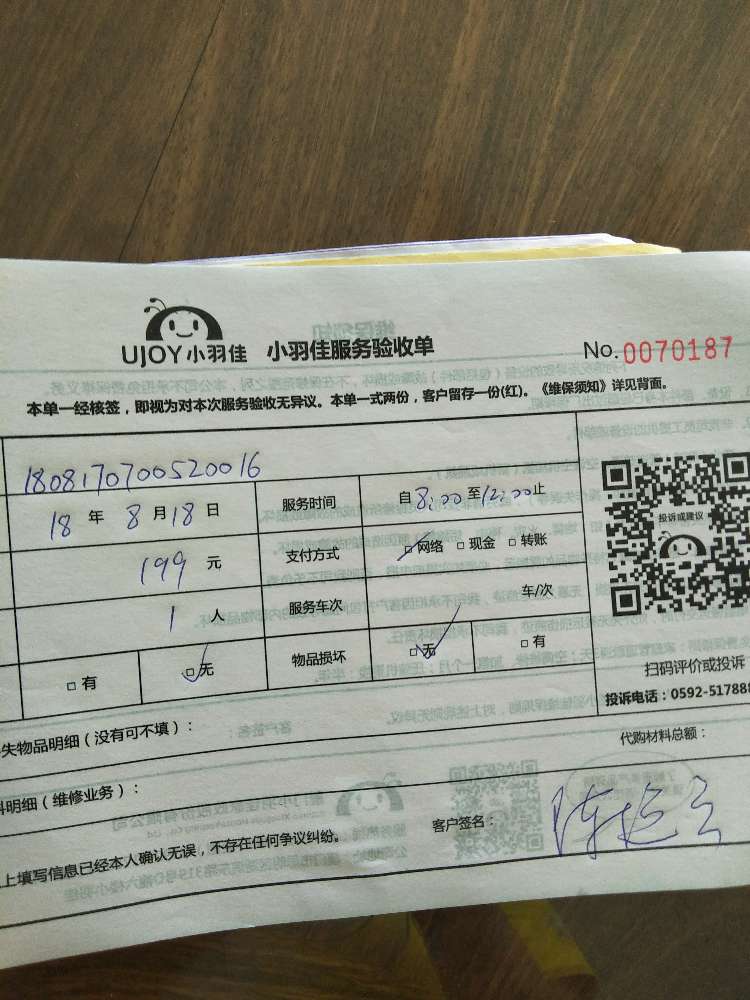 UJOY小羽佳 小羽佳服务验收单 No.0070187
本单一经核签，即视为对本次服务验收无异议。本单一式两份，客户留存一份(红)。《维保须知》详见背面。
1808170700520016
18 年 8 月 18 日 服务时间 自 8:00 至 12:00 止
投诉或建议
199 元 支付方式 □网络 □现金 □转账
1 人 服务车次 车/次
□有 □无 物品损坏 □无 □有
扫码评价或投诉
投诉电话：0592-517888
失物品明细（没有可不填）：
代购材料总额：
料明细（维修业务）：
上填写信息已经本人确认无误，不存在任何争议纠纷。
客户签名：